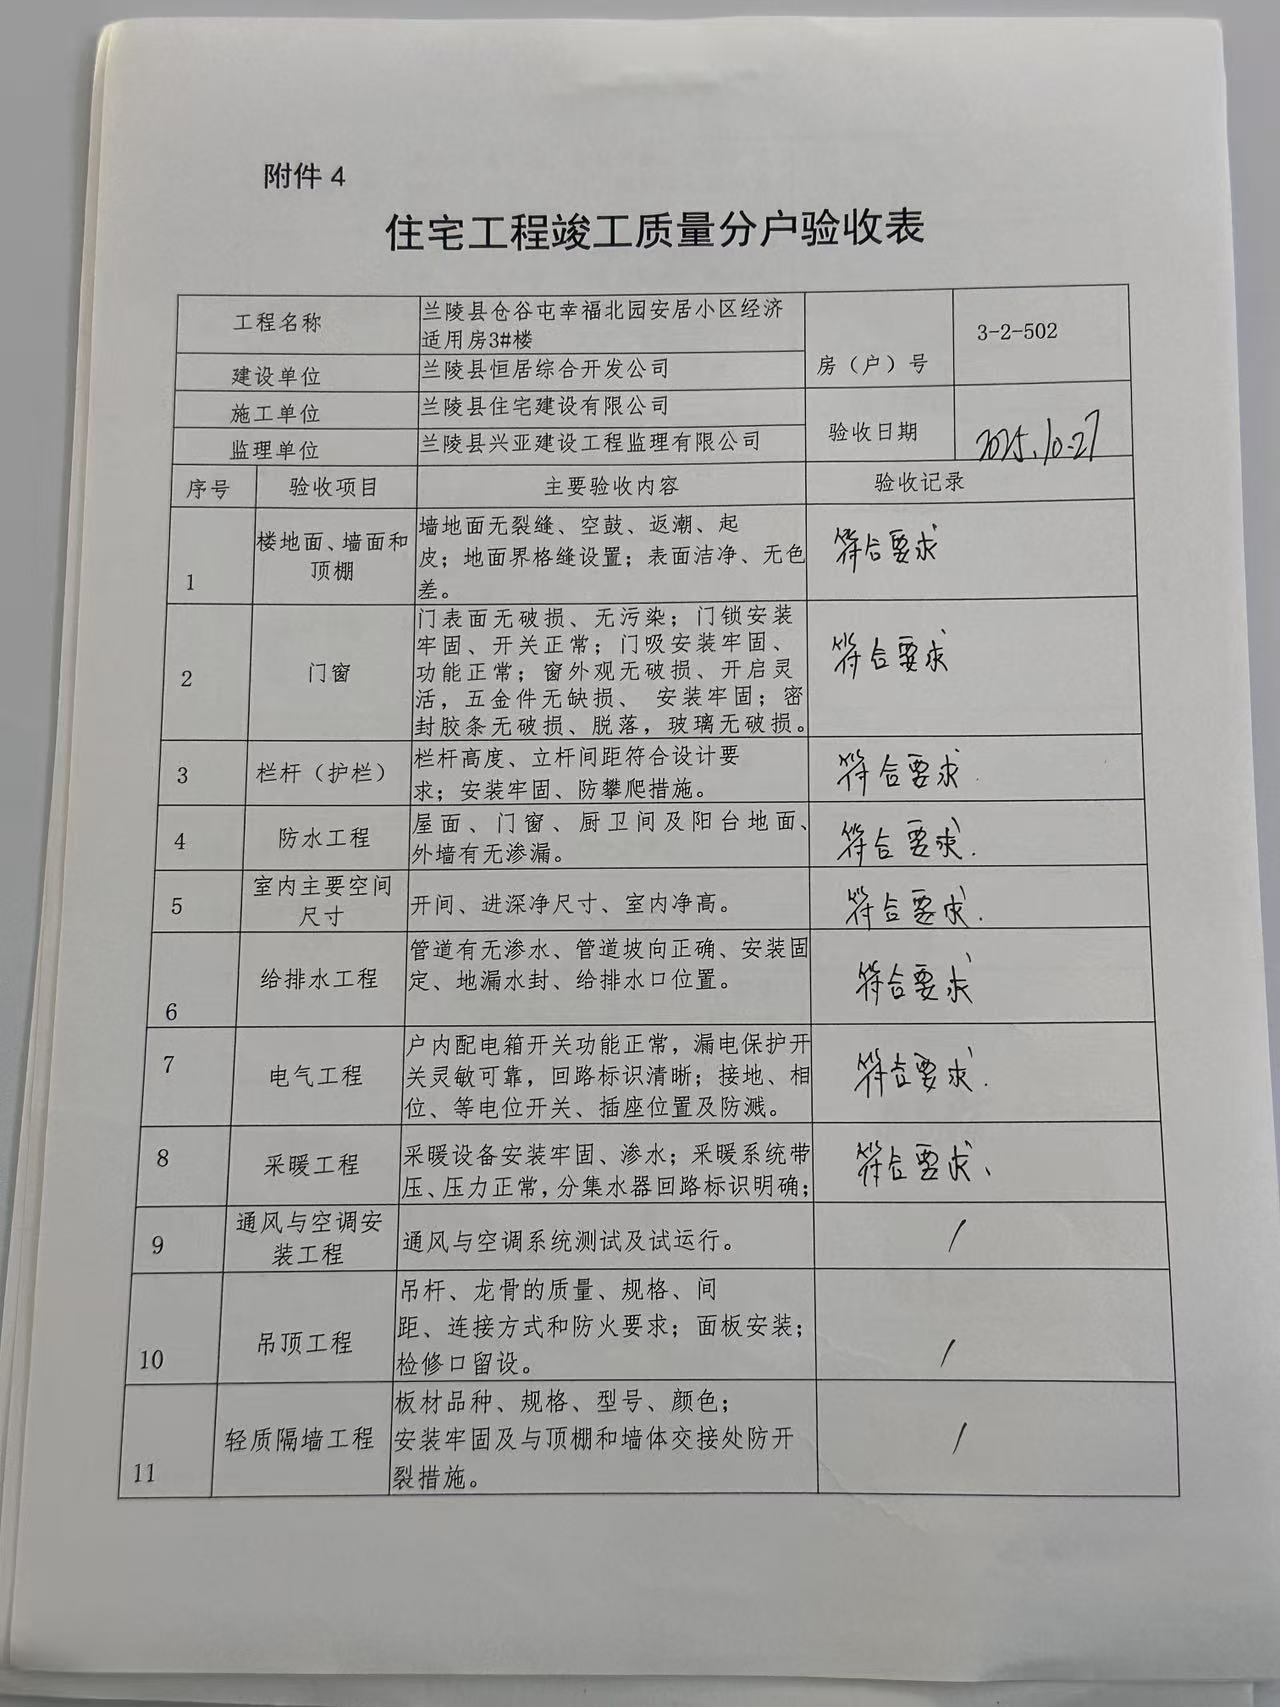 附件 4
住宅工程竣工质量分户验收表
工程名称
兰陵县仓谷屯幸福北园安居小区经济
适用房3#楼
房（户）号
3-2-502
建设单位
兰陵县恒居综合开发公司
施工单位
兰陵县住宅建设有限公司
验收日期
2025.10.27
监理单位
兰陵县兴亚建设工程监理有限公司
序号 验收项目 主要验收内容 验收记录
1
楼地面、墙面和
顶棚
墙地面无裂缝、空鼓、返潮、起
皮；地面界格缝设置；表面洁净、无色
差。
符合要求
2
门窗
门表面无破损、无污染；门锁安装
牢固、开关正常；门吸安装牢固、
功能正常；窗外观无破损、开启灵
活，五金件无缺损、 安装牢固；密
封胶条无破损、脱落，玻璃无破损。
符合要求
3
栏杆（护栏）
栏杆高度、立杆间距符合设计要
求；安装牢固、防攀爬措施。
符合要求.
4
防水工程
屋面、门窗、厨卫间及阳台地面、
外墙有无渗漏。
符合要求.
5
室内主要空间
尺寸
开间、进深净尺寸、室内净高。
符合要求.
6
给排水工程
管道有无渗水、管道坡向正确、安装固
定、地漏水封、给排水口位置。
符合要求
7
电气工程
户内配电箱开关功能正常，漏电保护开
关灵敏可靠，回路标识清晰；接地、相
位、等电位开关、插座位置及防溅。
符合要求.
8
采暖工程
采暖设备安装牢固、渗水；采暖系统带
压、压力正常，分集水器回路标识明确；
符合要求、
9
通风与空调安
装工程
通风与空调系统测试及试运行。
/
10
吊顶工程
吊杆、龙骨的质量、规格、间
距、连接方式和防火要求；面板安装；
检修口留设。
/
11
轻质隔墙工程
板材品种、规格、型号、颜色；
安装牢固及与顶棚和墙体交接处防开
裂措施。
/